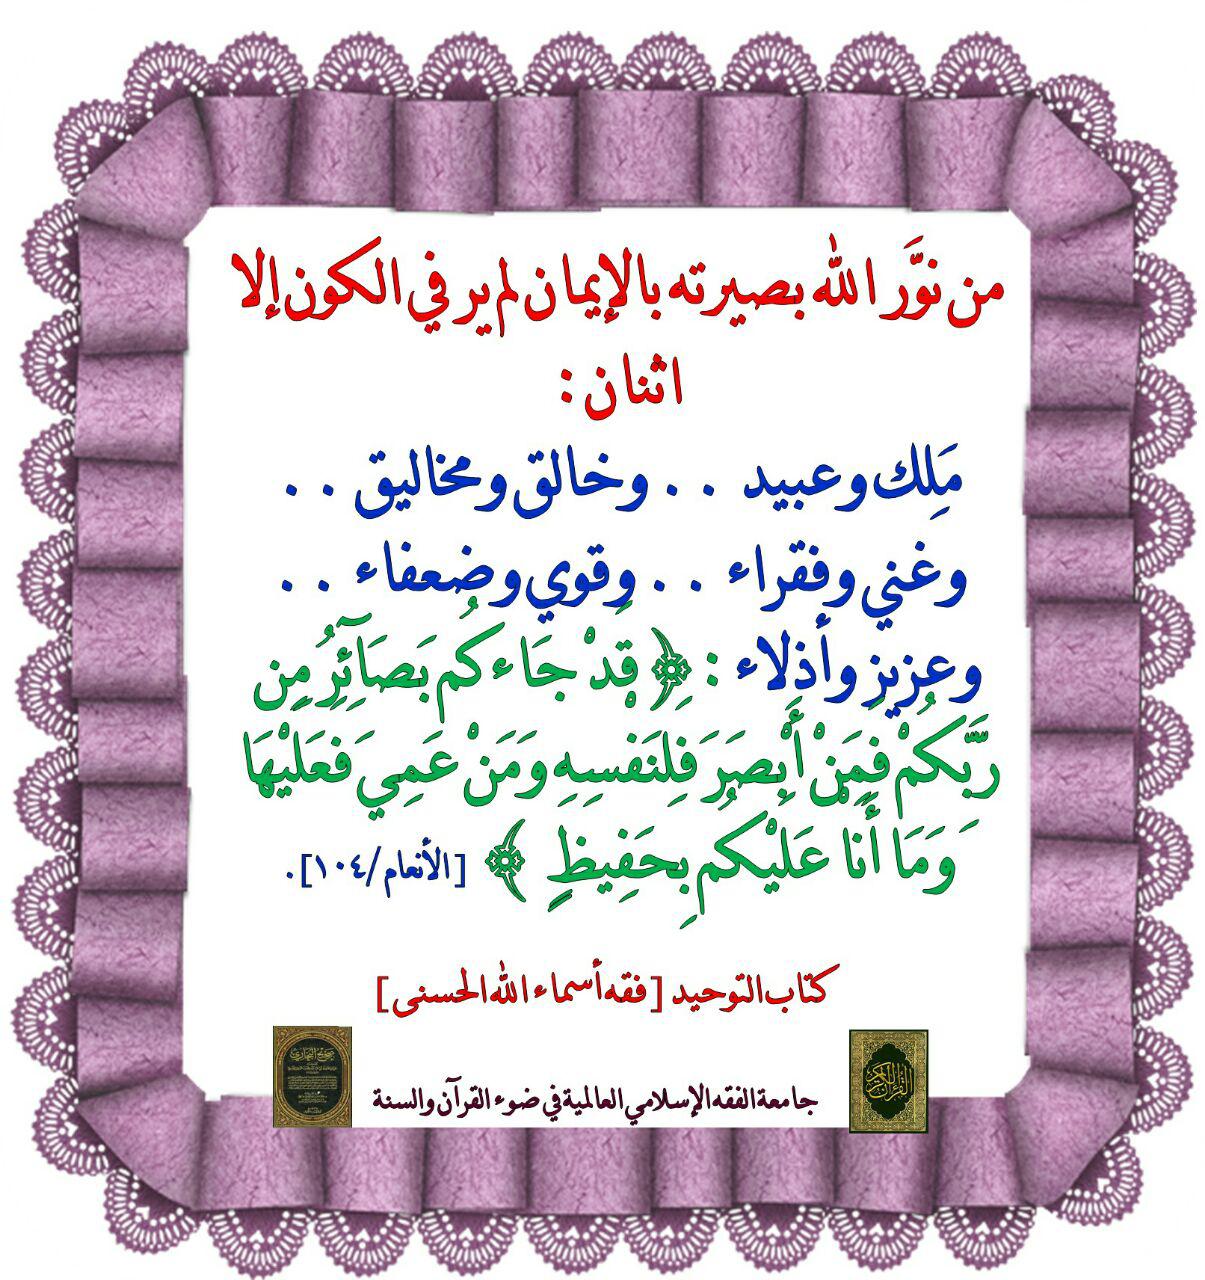 من نوَّر الله بصيرته بالإيمان لم ير في الكون إلا
اثنان :
مَلِك وعبيد . . وخالق ومخاليق . .
وغني وفقراء . . وقوي وضعفاء . .
وعزيز وأذلاء : ﴿ قَدْ جَاءكُم بَصَآئِرُ مِن
رَّبِّكُمْ فَمَنْ أَبْصَرَ فَلِنَفْسِهِ وَمَنْ عَمِيَ فَعَلَيْهَا
وَمَا أَنَا عَلَيْكُم بِحَفِيظٍ ﴾ [الأنعام/١٠٤].
كتاب التوحيد [فقه أسماء الله الحسنى]
صحيح البخاري
القرآن الكريم
جامعة الفقه الإسلامي العالمية في ضوء القرآن والسنة